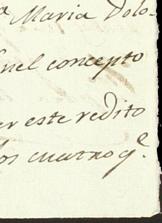 a Maria Dolo-
en el concepto
er este redito
los cuatro q.e